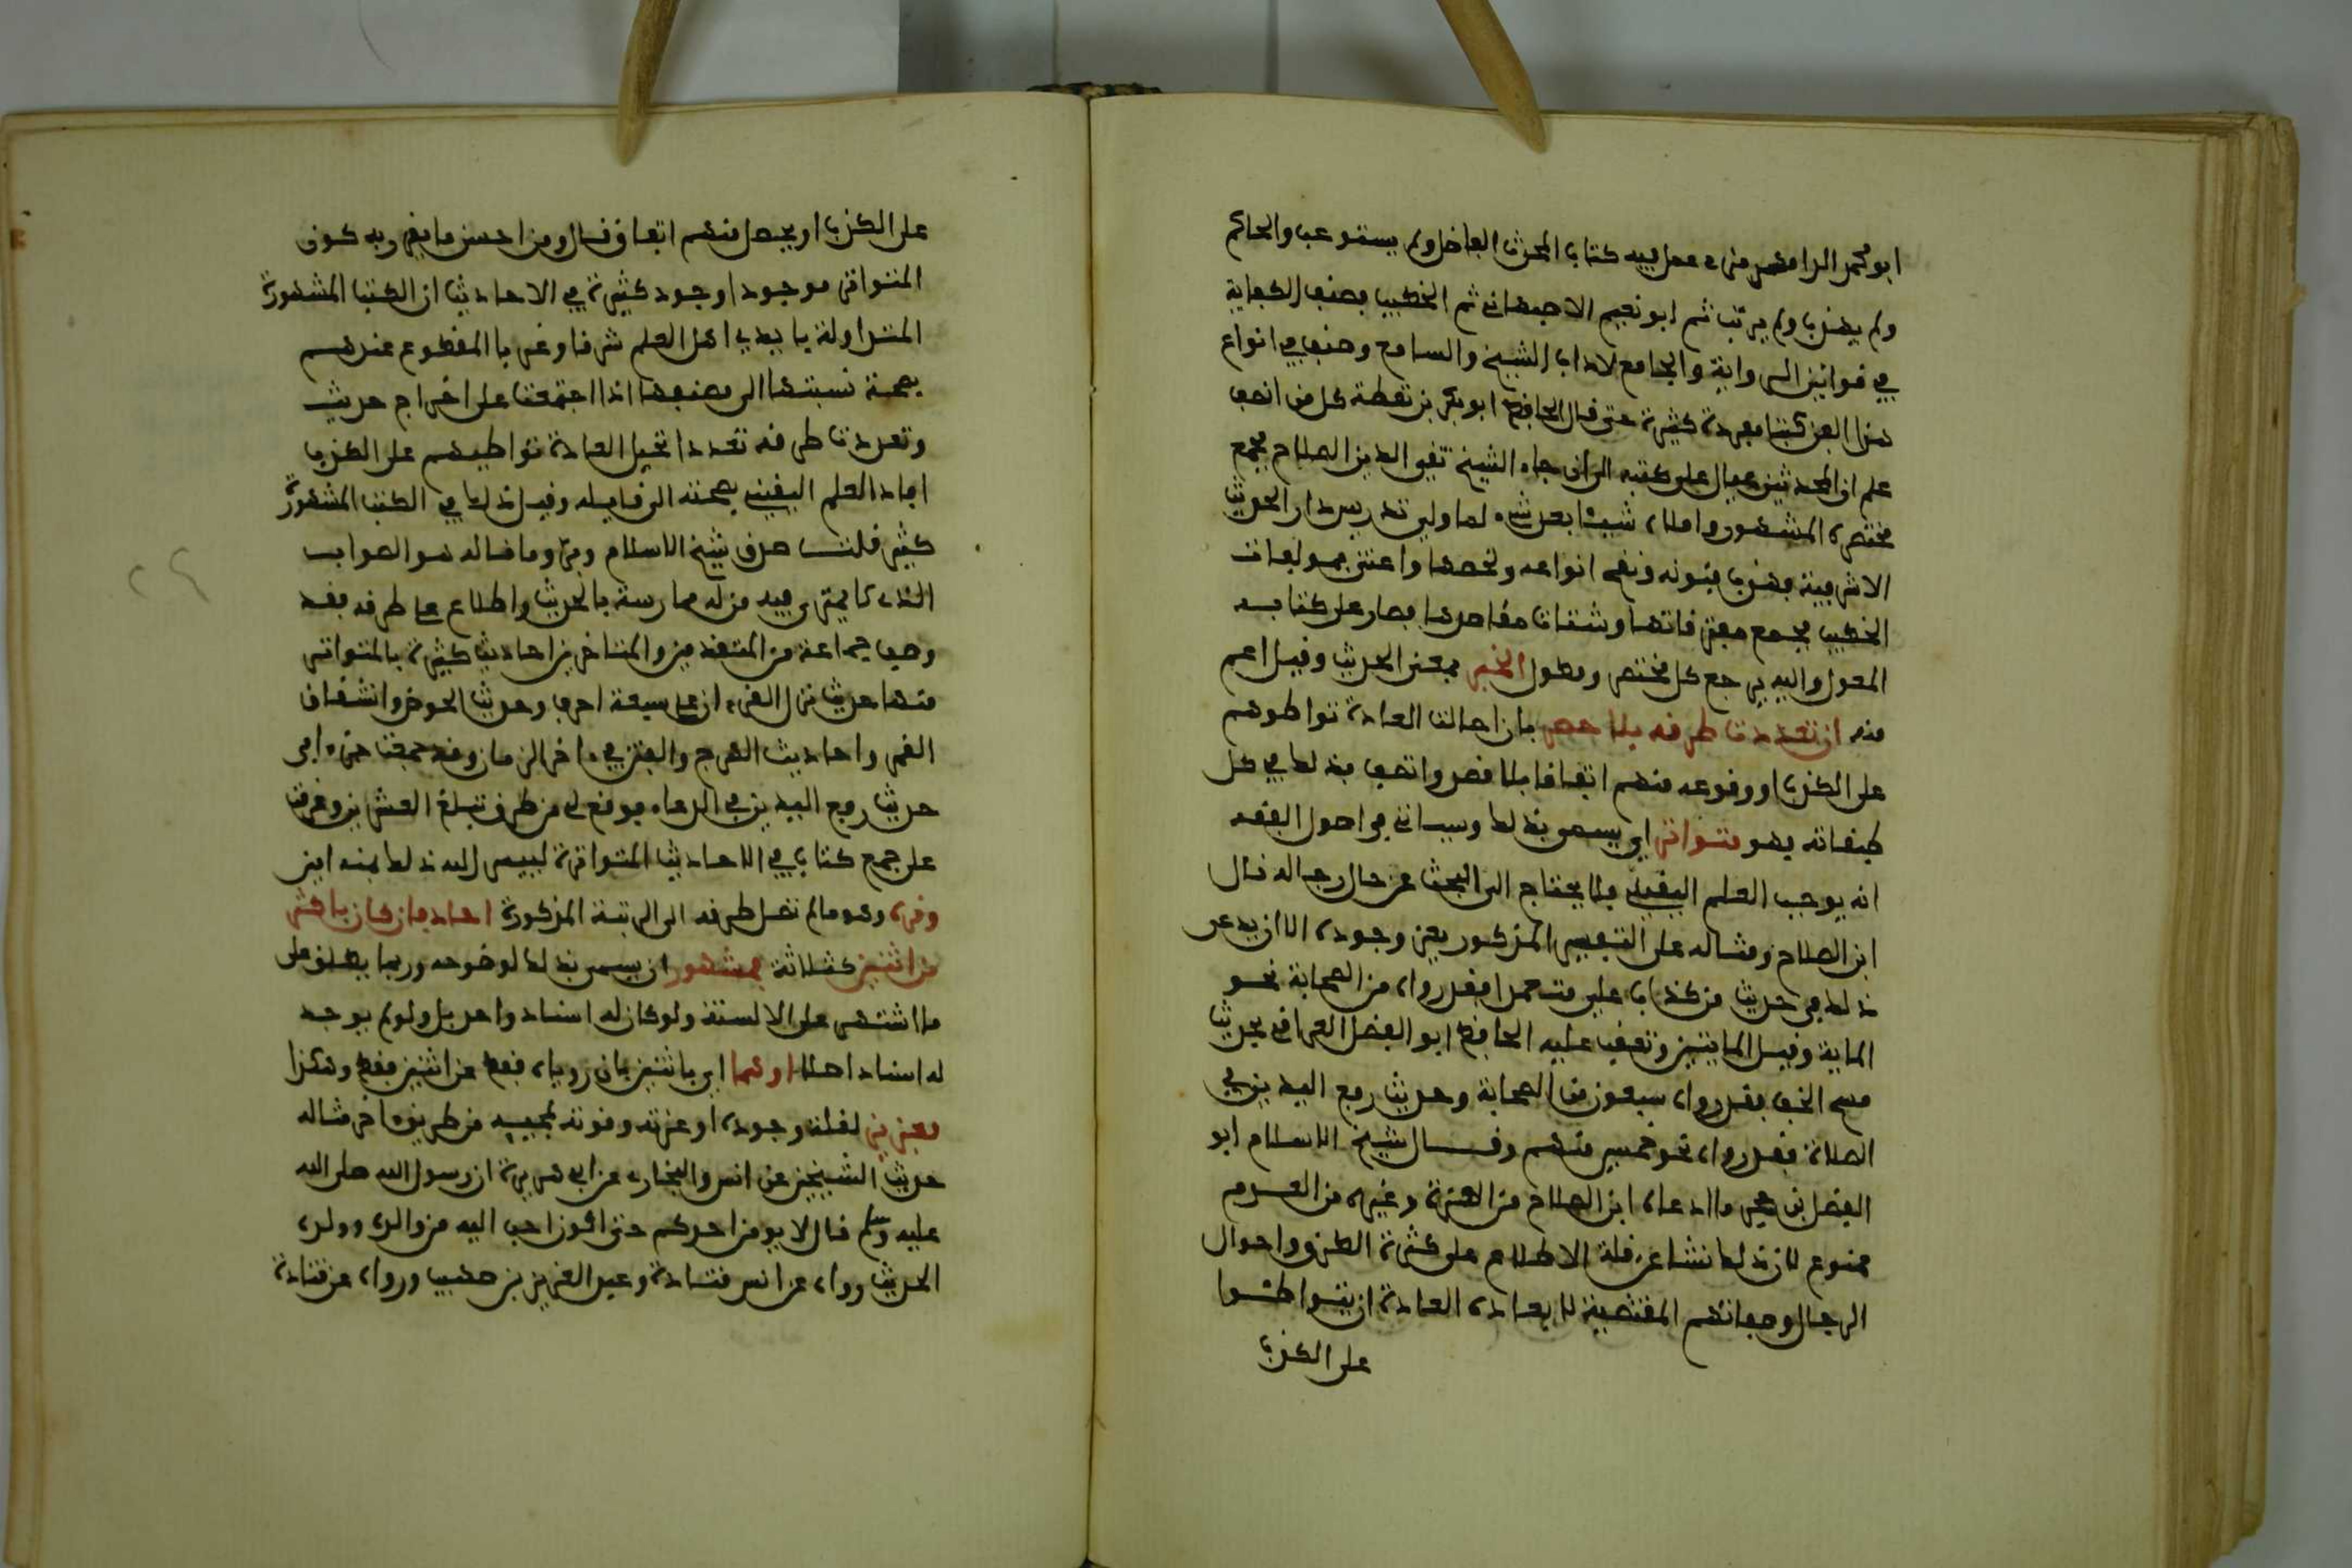 ابو محمد الرامهرمزي عمل فيه كتاب المحدث الفاضل ولم يستوعب والحاكم
ولم يهذب ولم يرتب ثم ابو نعيم الاصبهاني ثم الخطيب فصنف الكفاية
في قوانين الرواية والجامع لاداب الشيخ والسامع وصنف في انواع
هذا الفن كتبا مفردة كثيرة حتى قال الحافظ ابو بكر بن نقطة كل من انصف
علم ان المحدثين عيال على كتبه الى ان جاء الشيخ تقي الدين الصلاح فجمع
مختصره المشهور واملاه شيئا بعد شيء لما ولي تدريس دار الحديث
الاشرفية فهذب فنونه ونقح انواعه ولخصها واعتنى بمولفات
الخطيب فجمع مفترقاتها وشتات مقاصدها فصار على كتابه
المعول واليه يرجع كل مختصر ومطول الخبر بمعنى الحديث وقيل اعم
منه ان تعددت طرقه بلا حصر بان احالت العادة تواطوهم
على الكذب او وقوعه منهم اتفاقا بلا قصد واتصف بذلك في كل
طبقاته فهو متواتر اي يسمى بذلك وسياتي في اصول الفقه
انه يوجب العلم اليقيني فلا يحتاج الى البحث عن حال رجاله قال
ابن الصلاح ومثاله على التفسير المذكور يعز وجوده الا ان يدعى
ذلك في حديث من كذب علي متعمدا فقد رواه من الصحابة نحو
الماية وقيل المايتين وتعقب عليه الحافظ ابو الفضل العراقي بحديث
مسح الخف فقد رواه سبعون من الصحابة وحديث رفع اليدين في
الصلاة فقد رواه نحو خمسين منهم وقال شيخ الاسلام ابو
الفضل بن حجر ما ادعاه ابن الصلاح من العزة وغيره من العدم
ممنوع لان ذلك نشا عن قلة الاطلاع على كثرة الطرق واحوال
الرجال وصفاتهم المقتضية لابعاد العادة ان يتواطئوا
على الكذب
على الكذب او يحصل منهم اتفاق قال ومن احسن ما يقرر به كون
المتواتر موجودا وجود كثرة في الاحاديث ان الكتب المشهورة
المتداولة بايدي اهل العلم شرقا وغربا المقطوع عندهم
بصحة نسبتها الى مصنفها اذا اجتمعت على اخراج حديث
وتعددت طرقه تعددا تحيل العادة تواطيهم على الكذب
افاد العلم اليقيني بصحته الى قايله وقيل ذلك في الكتب المشهورة
كثير قلت صدق شيخ الاسلام وبر وما قاله هو الصواب
الذي لا يمتري فيه من له ممارسة بالحديث واطلاع على طرقه فقد
وصف جماعة من المتقدمين والمتاخرين احاديث كثيرة بالمتواتر
منها حديث نزل القرءان على سبعة احرف وحديث الحوض وانشقاق
القمر واحاديث الهرج والفتن في ءاخر الزمان وقد جمعت جزءا في
حديث رفع اليدين في الدعاء فوقع لي من طرق تبلغ العشرين وعزمت
على جمع كتاب في الاحاديث المتواترة ليسر الله ذلك بمنه امين
وغيره وهو ما لم تصل طرقه الى الرتبة المذكورة احاد فان كان باكثر
من اثنين كثلاثة فمشهور اي يسمى بذلك لوضوحه وربما يطلق على
ما اشتهر على الالسنة ولو كان له اسناد واحد بل ولو لم يوجد
له اسناد اصلا او بهما اي باثنين بان روياه فقط عن اثنين فقط وهكذا
فعزيز لقلة وجوده او عزته وقوته لمجييه من طريق ءاخر مثاله
حديث الشيخين عن انس والبخاري عن ابي هريرة ان رسول الله صلى الله
عليه وسلم قال لا يومن احدكم حتى اكون احب اليه من والده وولده
الحديث رواه عن انس قتادة وعبد العزيز بن صهيب ورواه عن قتادة